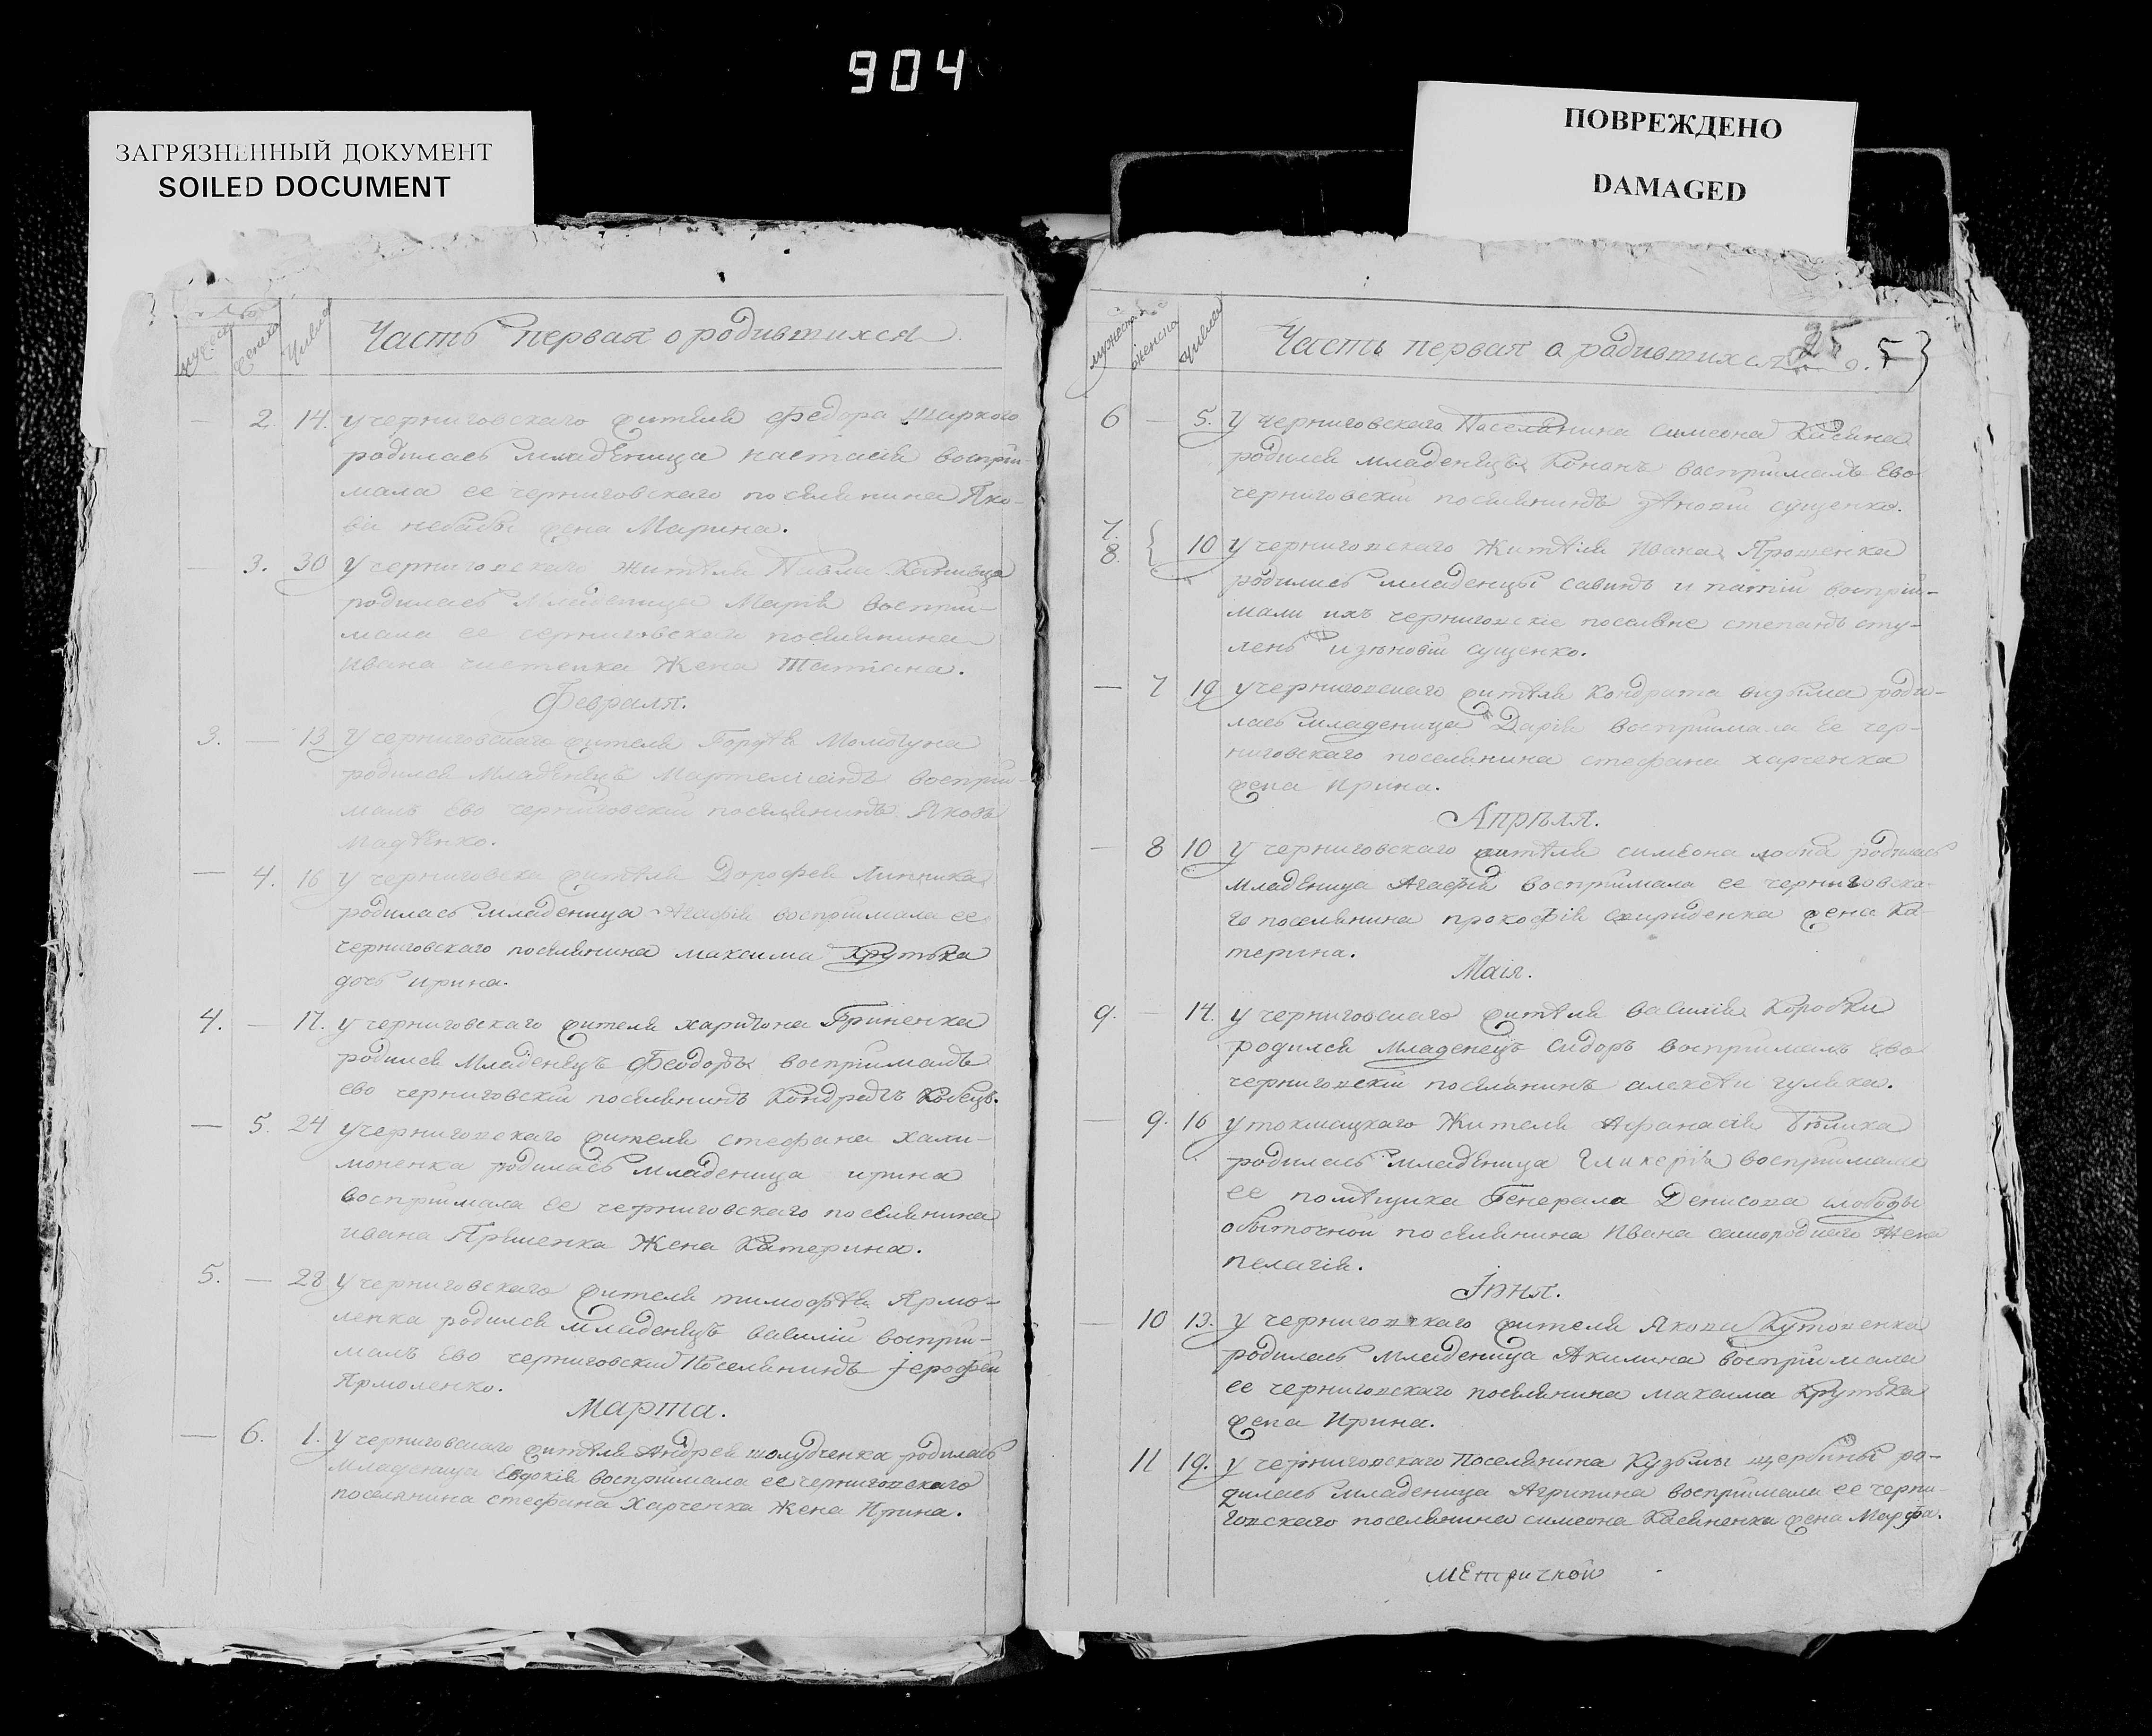 904
ЗАГРЯЗНЕННЫЙ ДОКУМЕНТ
SOILED DOCUMENT
ПОВРЕЖДЕНО
DAMAGED
Числа
Часть первая о родившихся
2. 14. у черниговскаго жителя Федора Шаркого
родилась младѣница настасія воспри-
мала ее черниговскаго поселянина Яко-
ва небабы жена Марина.
3. 30 у черниговскаго жителя Павла
родилась младеница Марія воспрій-
мала ее черниговскаго поселянина
Ивана чистенка Жена Татіана.
Февраля.
3. — 13 у черниговскаго жителя Гордѣя
родился младѣнецъ воспрій-
малъ ево черниговскій поселянинъ Яковъ
— 4. 16 у черниговска жителя Дорофея Липника
родилась младеница Агафія воспріймала ее
черниговскаго поселянина максима Крутька
дочь ирина.
4. — 17. у черниговскаго жителя харитона Гриненка
родился Младѣнецъ Феодоръ воспріймалъ
ево черниговскій поселянинъ Кондратъ Кобецъ.
— 5. 24 у черниговскаго жителя стефана хали-
моненка родилась младеница ирина
воспріймала ее черниговскаго поселянина
ивана Ярошенка Жена Катерина.
5. — 28 у черниговскаго жителя тимофѣя Ярмо-
ленка родился младенецъ василій воспрій-
малъ Ево черниговский Поселянинъ Іерофей
Ярмоленко.
Марта.
— 6. 1. у черниговскаго жителя Андрея шолудченка родилась
младеница Евдокія воспріймала ее черниговскаго
поселянина стефана Харченка Жена Ирина.
мужеска женска Числа
Часть первая о родившихся 25 5
6 — 5. у Черниговскаго Поселянина симеона Касяна
родился младенецъ Кононъ воспріймалъ Ево
черниговскій поселянинъ зѣновій сущенко.
7.
8. 10 у черниговскаго Жителя Ивана Ярошенка
родились младенцы савинъ и патій воспрій-
мали ихъ черниговскіе поселяне степанъ сту-
пень и зѣновій сущенко.
— 7 19 у черниговскаго жителя Кондрата визѣма роди-
лась младеница Дарія воспріймала Ее чер-
ниговскаго поселянина стефана харченка
жена Ирина.
Апрѣля.
— 8 10 у черниговскаго жителя симеона родилась
Младѣница Агафія воспріймала ее черниговска-
го поселянина прокофія свириденка жена Ка-
терина.
Маія.
9. — 14. у черниговскаго жителя василія Коробки
родился младенецъ сидоръ воспріймалъ ево
черниговскій поселянинъ алексѣй гулика.
— 9. 16 у токмацкаго Жителя Афанасія Бѣлика
родилась младѣница Гликерія воспріймала
ее помѣщика Генерала Денисова слободы
обыточной поселянина Ивана самородняго Жена
пелагія.
Іюня.
— 10 13. у черниговскаго жителя Якова Кутовенка
родилась младеница Акилина воспріймала
ее черниговскаго поселянина максима Крутька
жена Ирина.
11 19. у черниговскаго Поселянина Кузьмы щербины ро-
дилась младеница Агрипина воспріймала ее черни-
говскаго поселянина симеона Касяненка жена Марфа.
метричной